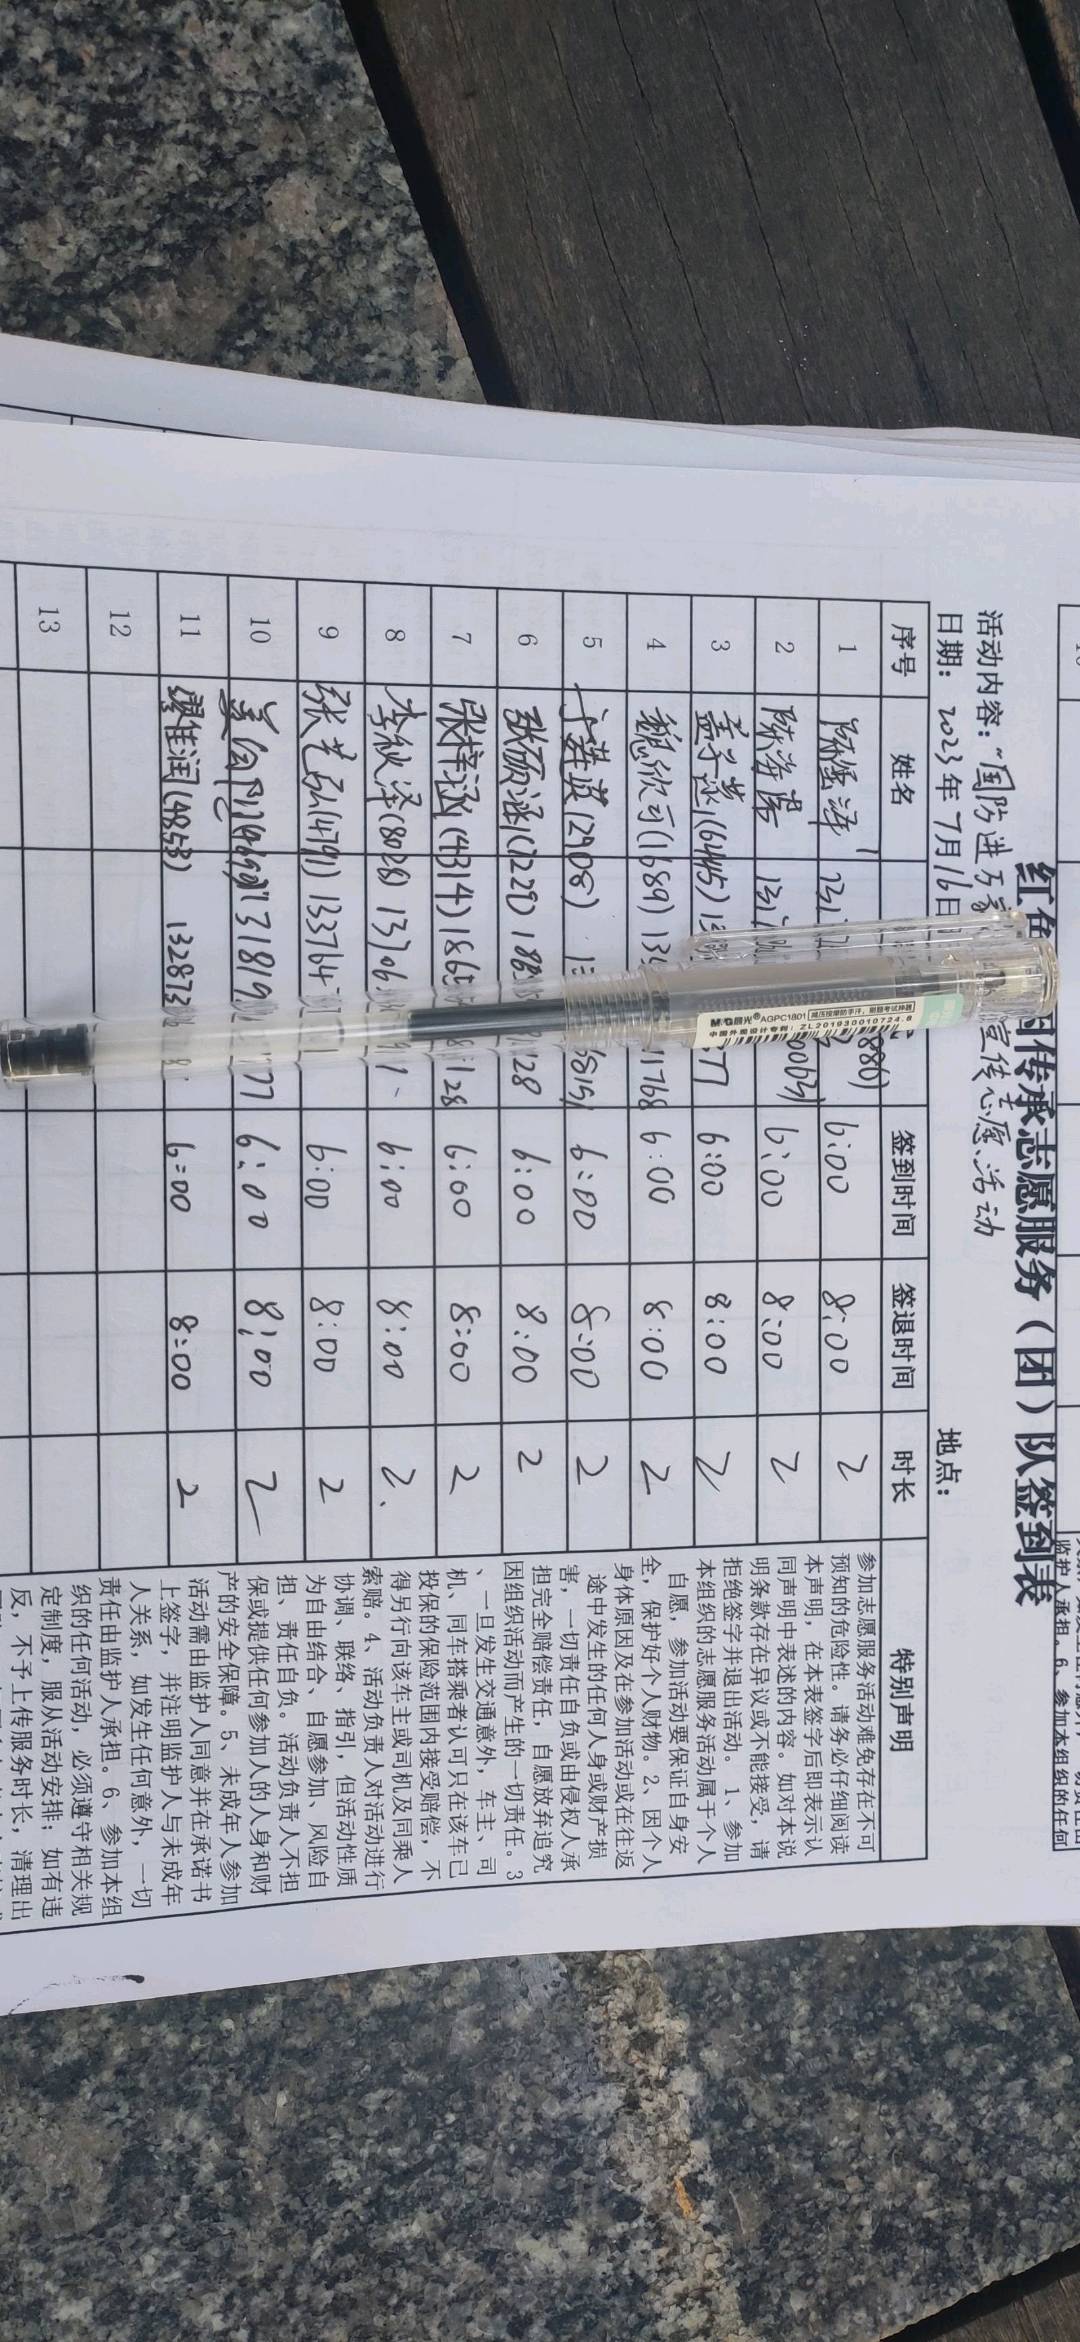 红色 传承志愿服务（团）队签到表
活动内容：“国防进万 宣传志愿活动
日期：2023年7月16日 地点：
序号 姓名 签到时间 签退时间 时长 特别声明
1 6:00 8:00 2
2 陈 6:00 8:00 2
3 孟子涵(6445) 77 6:00 8:00 2
4 魏欣可(1689) 13 11768 6:00 8:00 2
5 (2908) 6:00 8:00 2
6 张硕涵(1229) 128 6:00 8:00 2
7 张梓涵(4314) 1865 128 6:00 8:00 2
8 李秋泽(8028) 13706 6:00 8:00 2
9 张艺 (4791) 133764 6:00 8:00 2
10 77 6:00 8:00 2
11 廖佳润(4858) 132873 6:00 8:00 2
12
13
参加志愿服务活动难免存在不可
预知的危险性。请务必仔细阅读
本声明，在本表签字后即表示认
同声明中表述的内容。如对本说
明条款存在异议或不能接受，请
拒绝签字并退出活动。1、参加
本组织的志愿服务活动属于个人
自愿，参加活动要保证自身安
全，保护好个人财物。2、因个人
身体原因及在参加活动或在往返
途中发生的任何人身或财产损
害，一切责任自负或由侵权人承
担完全赔偿责任，自愿放弃追究
因组织活动而产生的一切责任。3
、一旦发生交通意外，车主、司
机、同车搭乘者认可只在该车已
投保的保险范围内接受赔偿，不
得另行向该车主或司机及同乘人
索赔。4、活动负责人对活动进行
协调、联络、指引，但活动性质
为自由结合、自愿参加、风险自
担、责任自负。活动负责人不担
保或提供任何参加人的人身和财
产的安全保障。5、未成年人参加
活动需由监护人同意并在承诺书
上签字，并注明监护人与未成年
人关系，如发生任何意外，一切
责任由监护人承担。6、参加本组
织的任何活动，必须遵守相关规
定制度，服从活动安排；如有违
反，不予上传服务时长，清理出
监护人承担。6、参加本组织的任何
M&G晨光 AGPC1801 减压按摩防手汗，刷题考试神器
中国外观设计专利：ZL201930010724.8